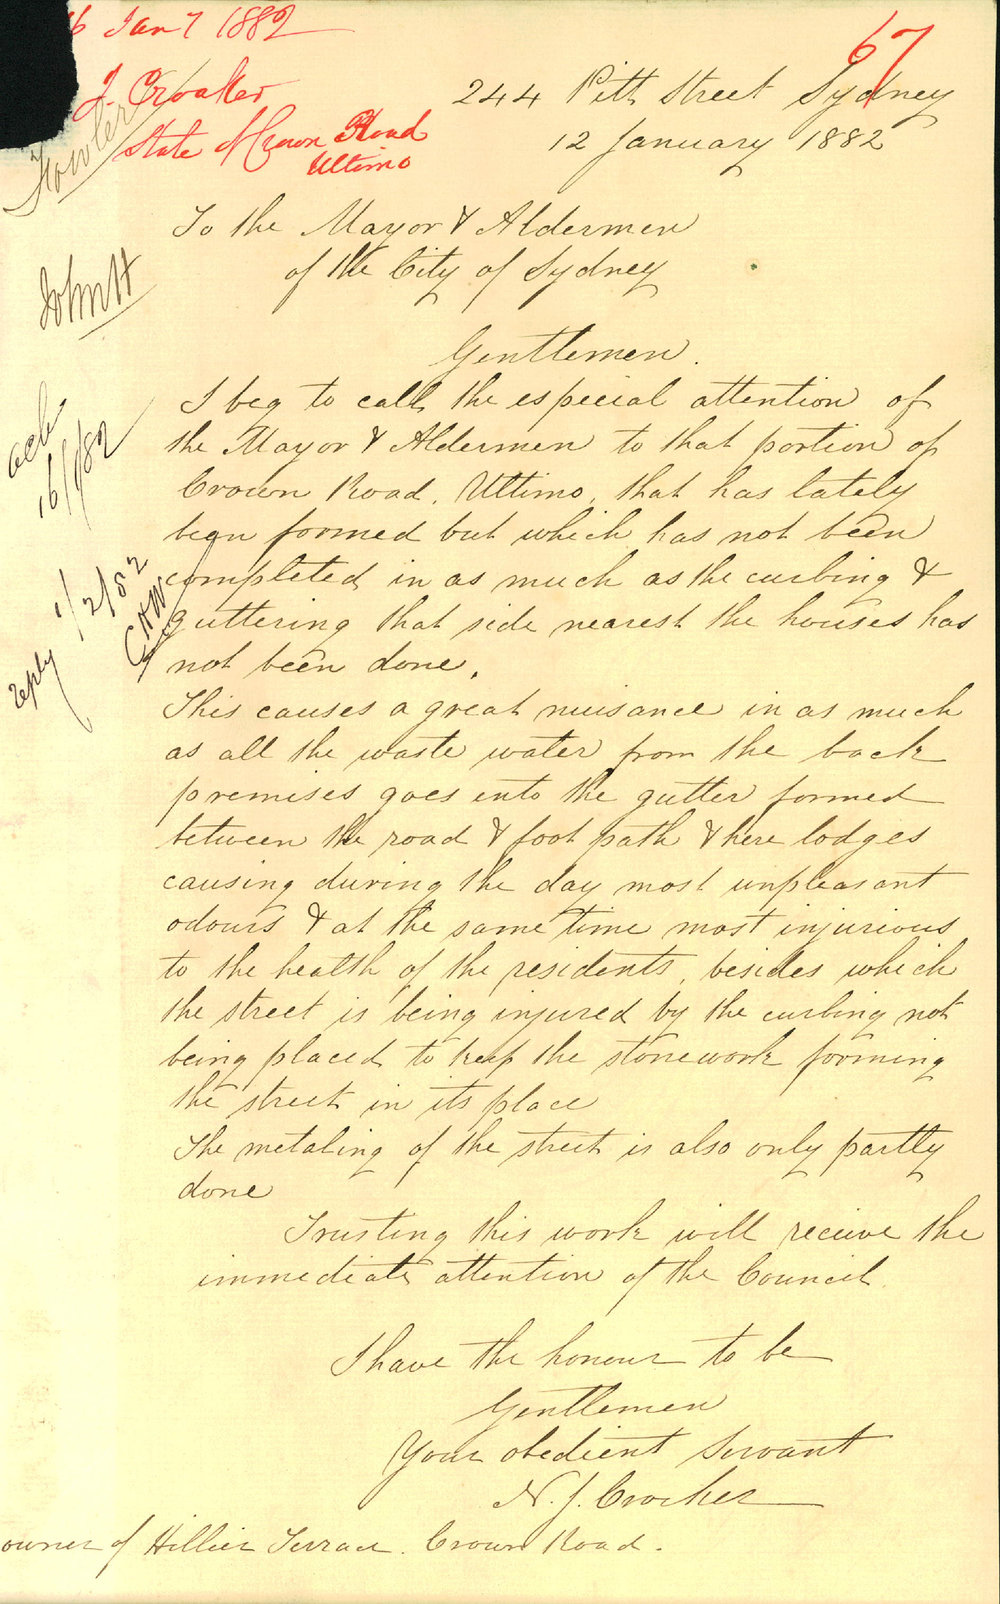 6 Jany 1882
67
J. Croaker
State of Crown Road
Ultimo
Fowler
244 Pitt Street Sydney
12 January 1882
To the Mayor & Aldermen
of the City of Sydney
John H
Gentlemen.
I beg to call the especial attention of
the Mayor & Aldermen to that portion of
Crown Road, Ultimo, that has lately
been formed but which has not been
completed in as much as the curbing &
guttering that side nearest the houses has
not been done.
ack
16/1/82
reply 1/2/82
This causes a great nuisance in as much
as all the waste water from the back
premises goes into the gutter formed
between the road & foot path & here lodges
causing during the day most unpleasant
odours & at the same time most injurious
to the health of the residents, besides which
the street is being injured by the curbing not
being placed to keep the stonework forming
the street in its place
The metaling of the street is also only partly
done
Trusting this work will receive the
immediate attention of the Council.
I have the honour to be
Gentlemen
Your obedient Servant
N. J. Crocker
owner of Hillier Terrace. Crown Road.